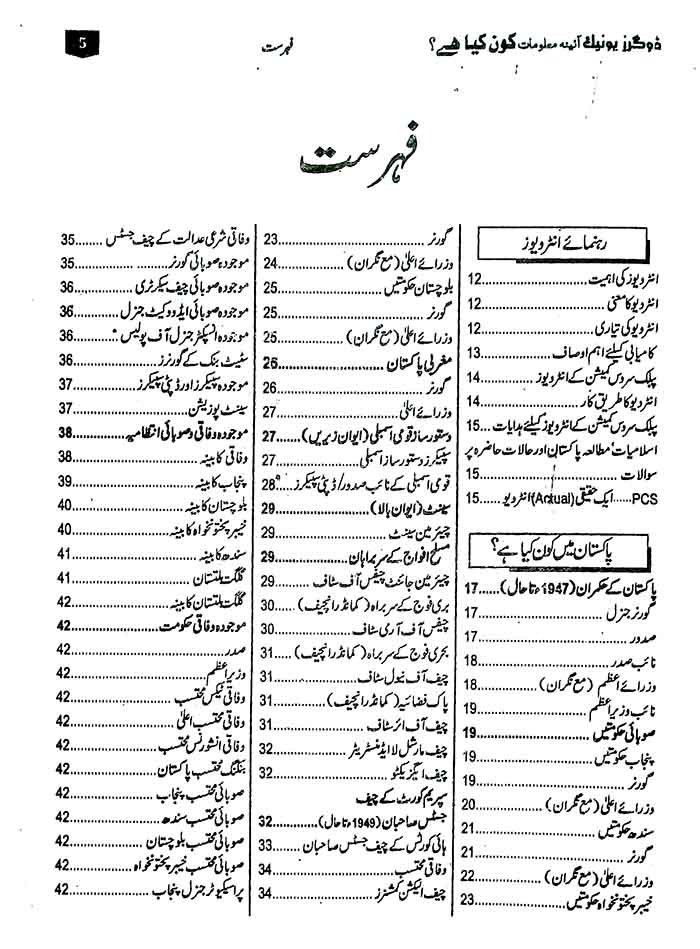 ڈوگرز یونیک آئینہ معلومات کون کیا ھے؟
فہرست
5
فہرست
رہنمائے انٹرویوز
انٹرویوز کی اہمیت 12
انٹرویو کا معنی 12
انٹرویو کی تیاری 12
کامیابی کیلئے اہم اوصاف 13
پبلک سروس کمیشن کے انٹرویوز 14
انٹرویو کا طریق کار 14
پبلک سروس کمیشن کے انٹرویوز کیلئے ہدایات 15
اسلامیات' مطالعہ پاکستان اور حالات حاضرہ پر
سوالات 15
PCS ..... ایک حقیقی (Actual) انٹرویو 15
پاکستان میں کون کیا ہے؟
پاکستان کے حکمران (1947ء تا حال) 17
گورنر جنرل 17
صدور 17
نائب صدر 18
وزرائے اعظم (مع نگران) 18
نائب وزیر اعظم 19
صوبائی حکومتیں 19
پنجاب حکومتیں 19
گورنر 19
وزرائے اعلیٰ (مع نگران) 20
سندھ حکومتیں 21
گورنر 21
وزرائے اعلیٰ (مع نگران) 22
خیبر پختونخواہ حکومتیں 23
گورنر 23
وزرائے اعلیٰ (مع نگران) 24
بلوچستان حکومتیں 25
گورنر 25
وزرائے اعلیٰ (مع نگران) 25
مغربی پاکستان 26
گورنر 26
وزرائے اعلیٰ 27
دستور ساز قومی اسمبلی (ایوان زیریں) 27
سپیکرز دستور ساز اسمبلی 27
قومی اسمبلی کے نائب صدور/ ڈپٹی سپیکرز 28
سینٹ (ایوان بالا) 29
چیئرمین سینٹ 29
مسلح افواج کے سربراہان 29
چیئرمین جائنٹ چیفس آف سٹاف 29
بری فوج کے سربراہ (کمانڈر انچیف) 30
چیفس آف آرمی سٹاف 30
بحری فوج کے سربراہ (کمانڈر انچیف) 31
چیف آف نیول سٹاف 31
پاک فضائیہ (کمانڈر انچیف) 31
چیف آف ائر سٹاف 31
چیف مارشل لا ایڈمنسٹریٹر 32
چیف ایگزیکٹو 32
سپریم کورٹ کے چیف
جسٹس صاحبان (1949ء تا حال) 32
ہائی کورٹس کے چیف جسٹس صاحبان 33
وفاقی محتسب 34
چیف الیکشن کمشنرز 34
وفاقی شرعی عدالت کے چیف جسٹس 35
موجودہ صوبائی گورنر 35
موجودہ صوبائی چیف سیکرٹری 36
موجودہ صوبائی ایڈووکیٹ جنرل 36
موجودہ انسپکٹر جنرل آف پولیس 36
سٹیٹ بنک کے گورنرز 36
موجودہ سپیکرز اور ڈپٹی سپیکرز 37
سینٹ پوزیشن 37
موجودہ وفاقی و صوبائی انتظامیہ 38
وفاقی کابینہ 38
پنجاب کابینہ 39
بلوچستان کابینہ 40
خیبر پختونخواہ کابینہ 40
سندھ کابینہ 41
گلگت بلتستان 41
گلگت بلتستان کابینہ 42
موجودہ وفاقی حکومت 42
صدر 42
وزیر اعظم 42
وفاقی ٹیکس محتسب 42
وفاقی محتسب اعلیٰ 42
وفاقی انشورنس محتسب 42
بنکنگ محتسب پاکستان 42
صوبائی محتسب پنجاب 42
صوبائی محتسب سندھ 42
صوبائی محتسب بلوچستان 42
صوبائی محتسب خیبر پختونخواہ 42
پراسیکیوٹر جنرل پنجاب 42